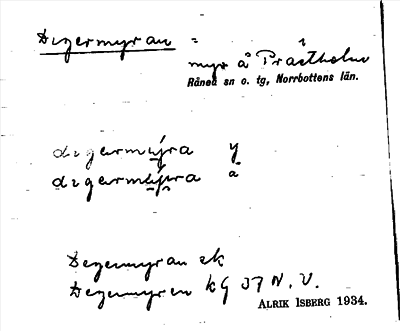 Degermyran =
myr å Prästholm
Råneå sn o. tg, Norrbottens län.
degermýra y
degermýra a
Degermyran ek
Degermyren kG 37 N.V.
ALRIK ISBERG 1934.